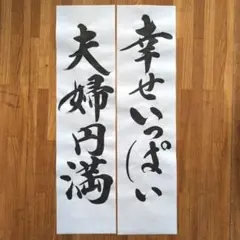 幸せいっぱい
夫婦円満